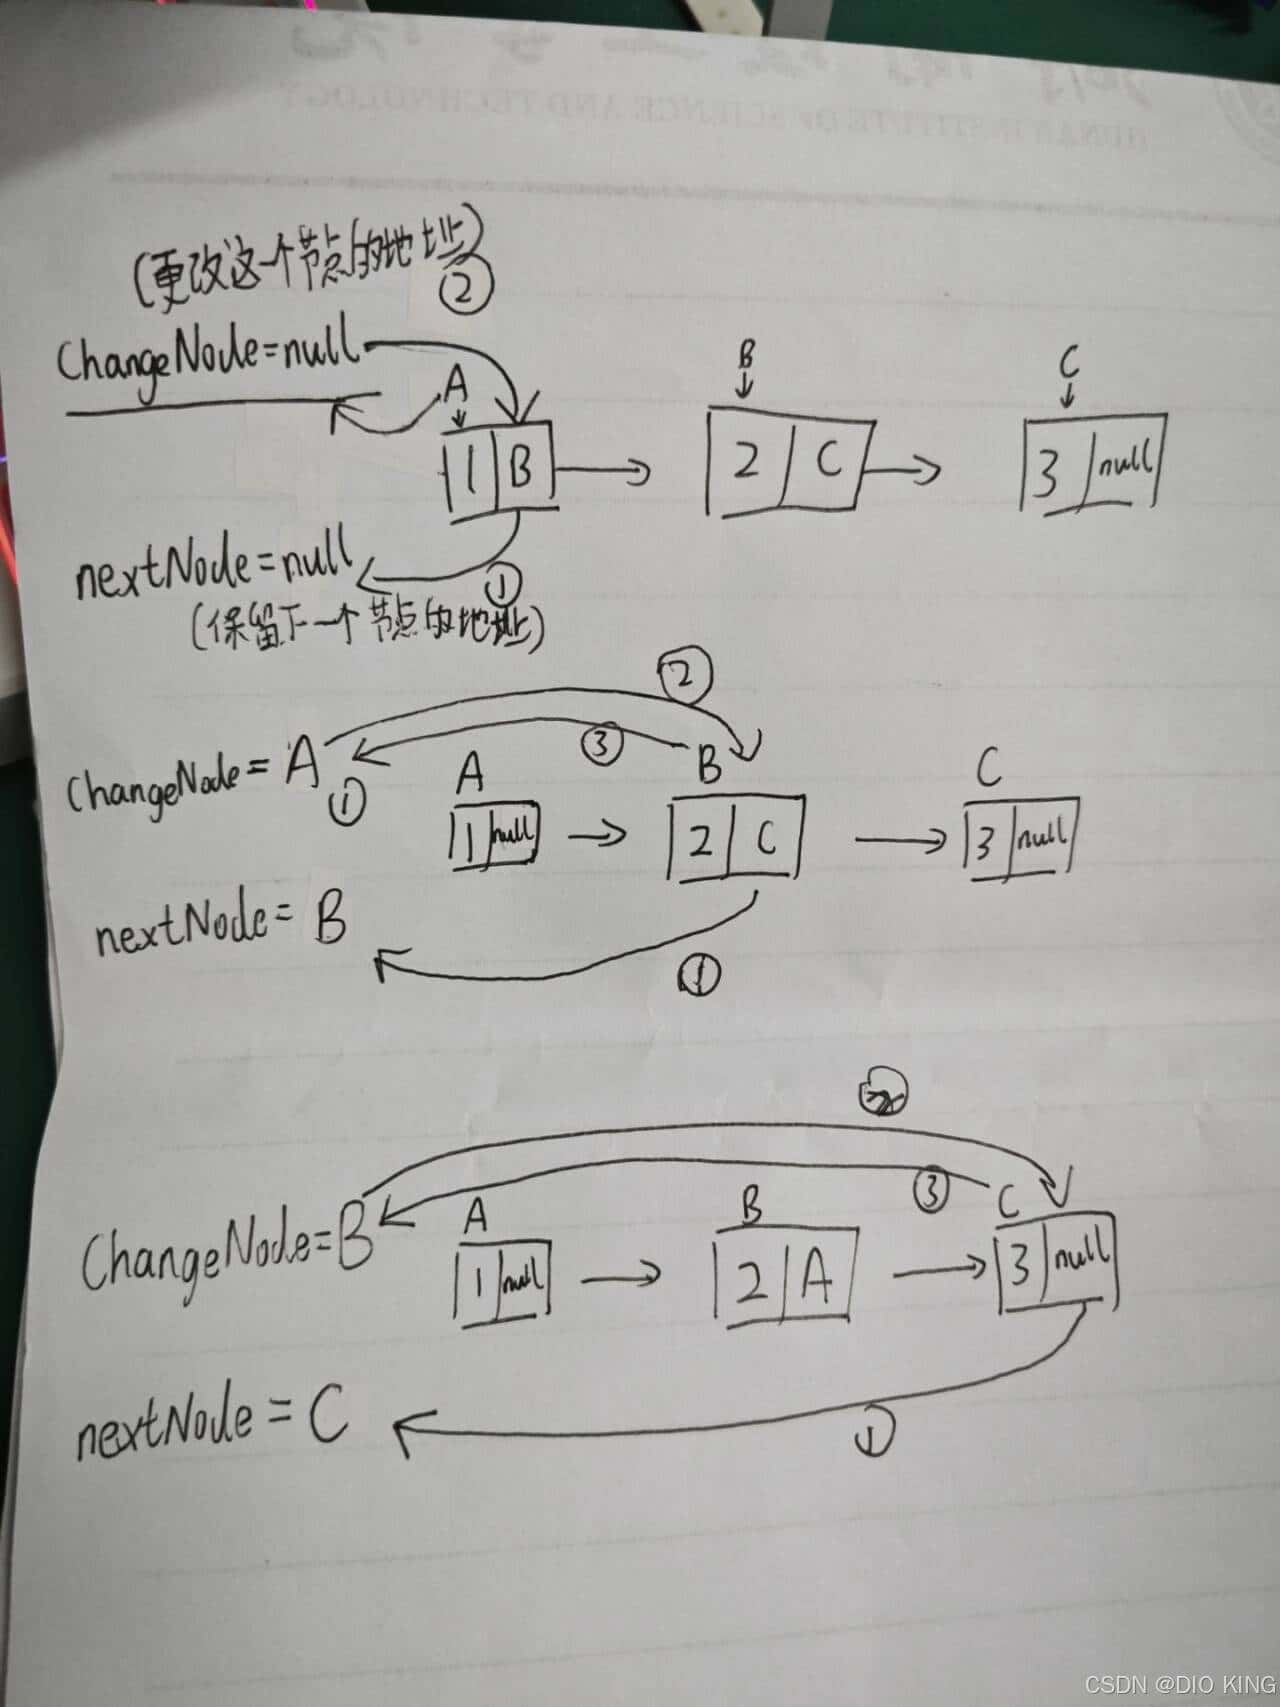 HUNAN INSTITUTE OF SCIENCE AND TECHNOLOGY
(更改这个节点的地址)
②
ChangeNode=null
A
B
C
1 B
2 C
3 null
nextNode=null
①
(保留下一个节点的地址)
②
③
ChangeNode=A
①
A
B
C
1 null
2 C
3 null
nextNode=B
①
③
ChangeNode=B
A
B
C
1 null
2 A
3 null
nextNode=C
①
CSDN @DIO KING